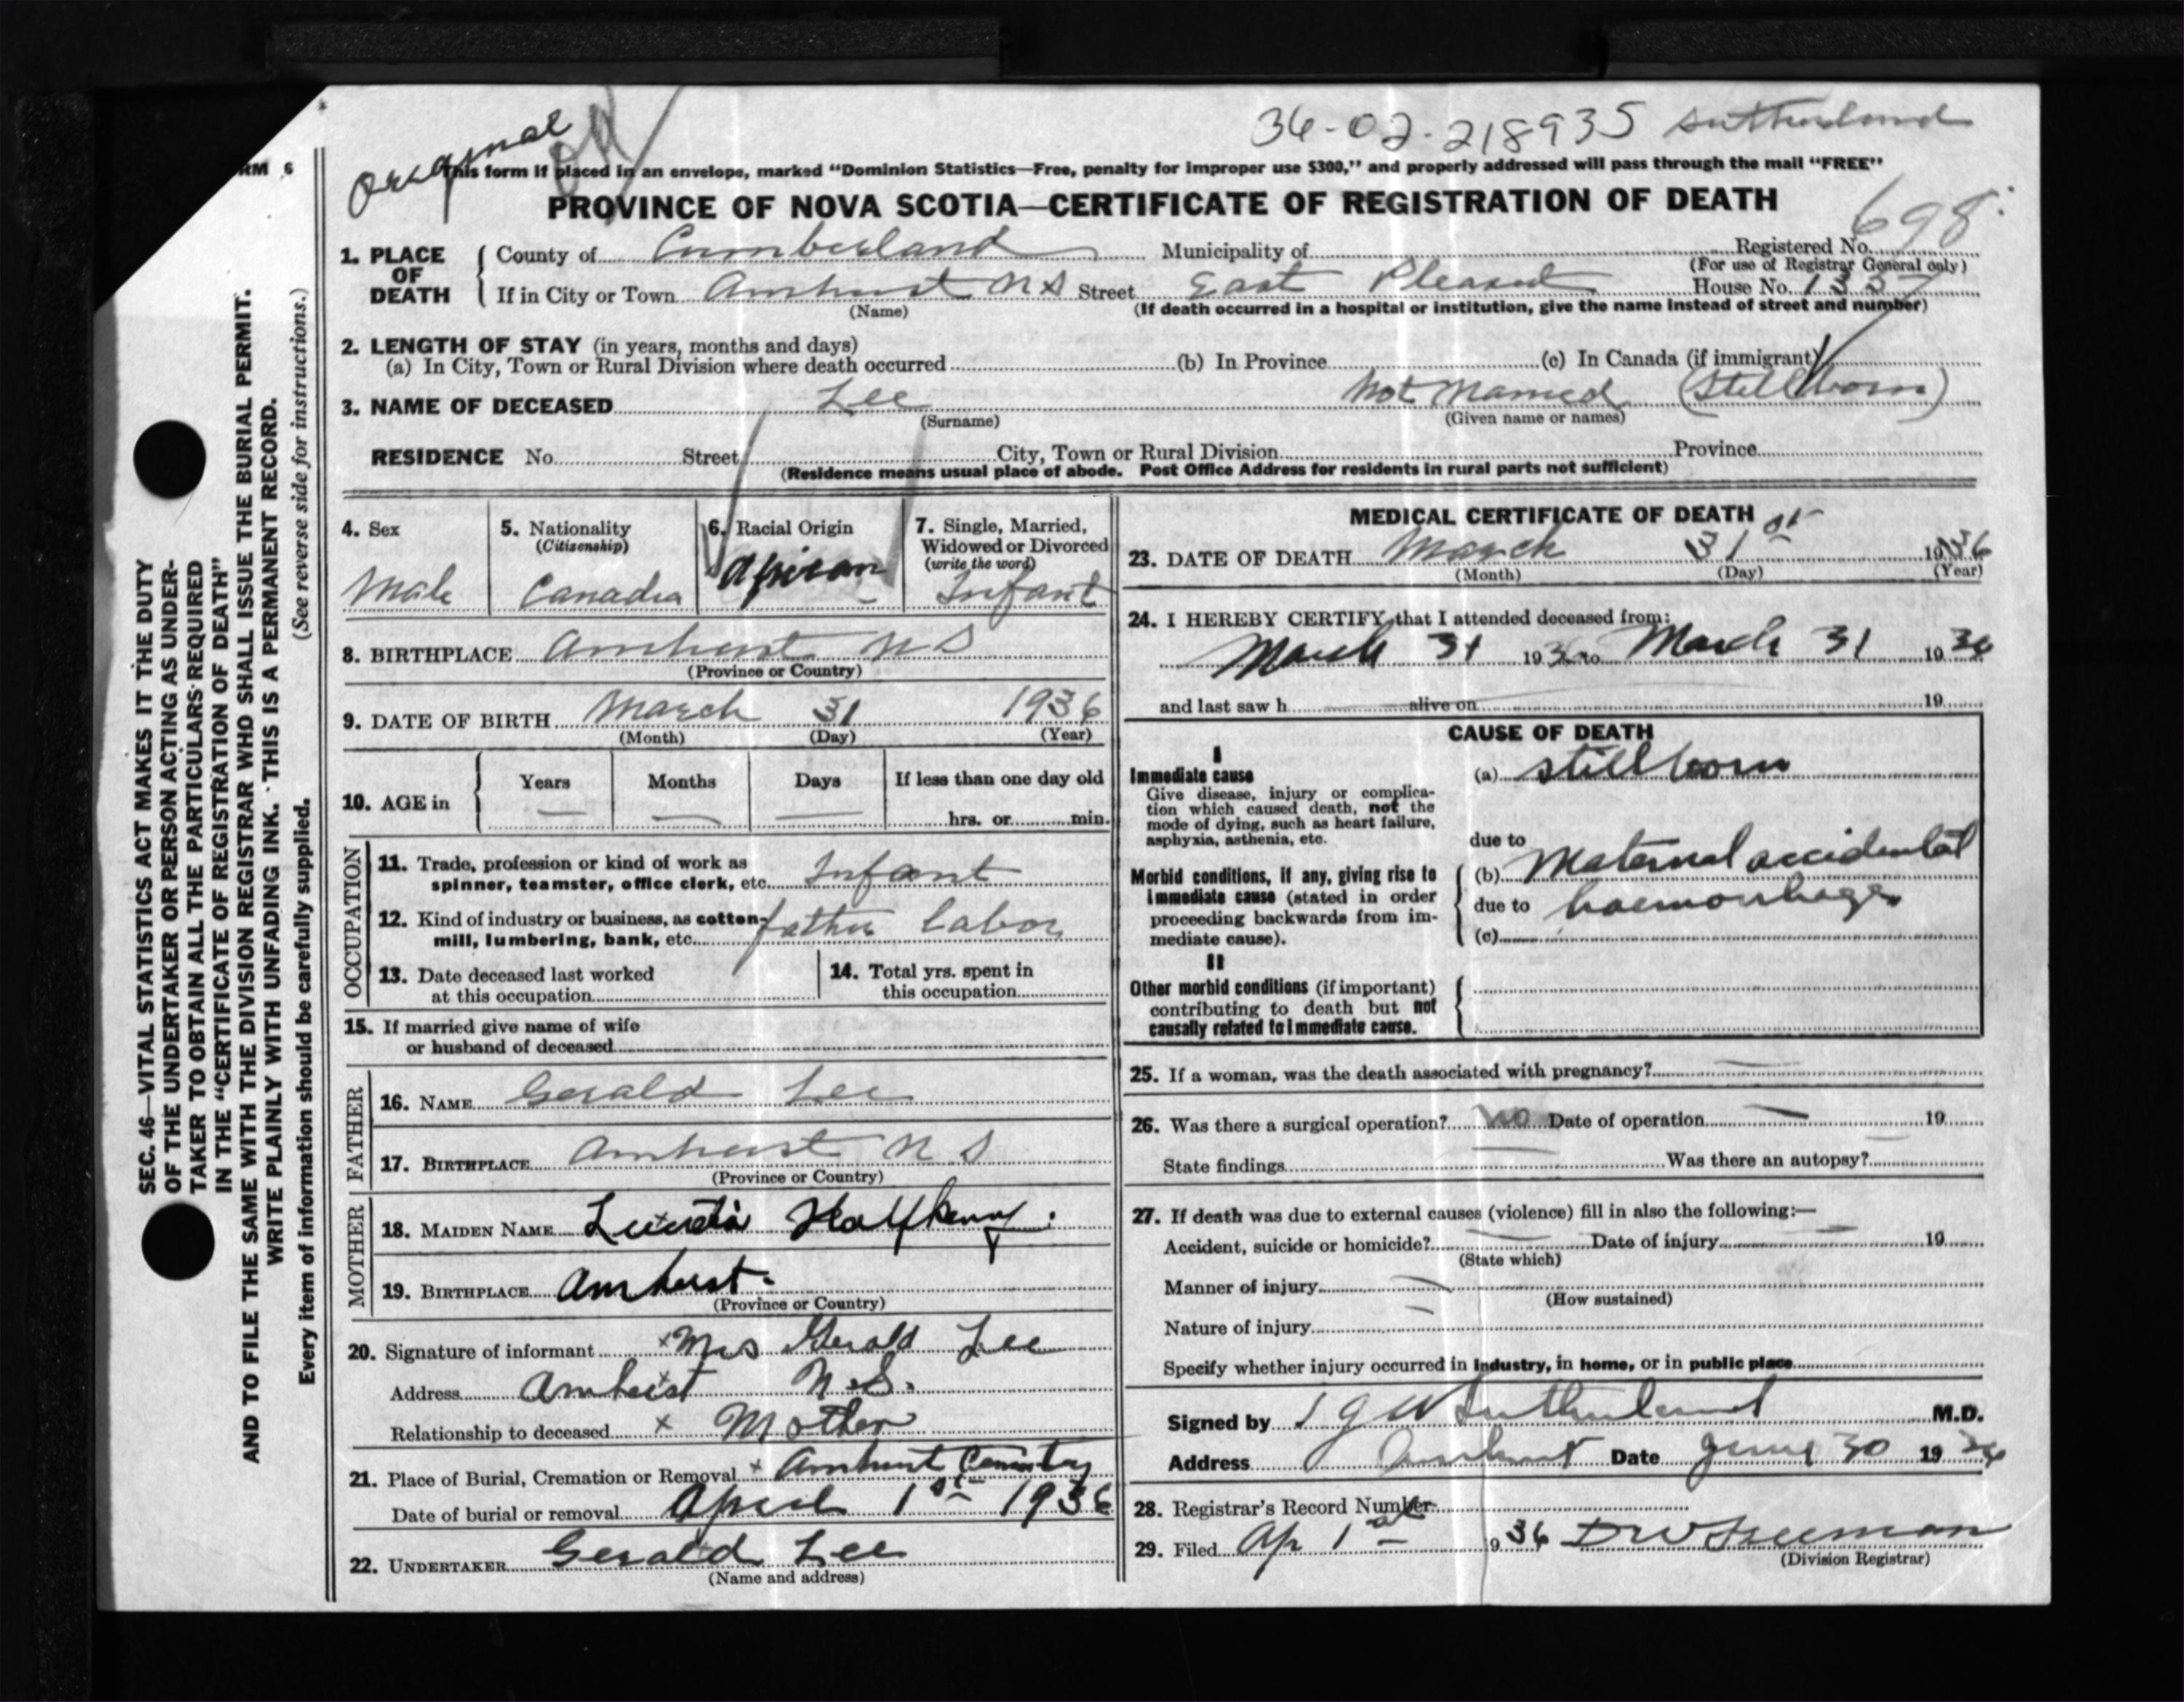 Original
36-02-218935 Sutherland
RM 6
This form if placed in an envelope, marked "Dominion Statistics—Free, penalty for improper use $300," and properly addressed will pass through the mail "FREE"
PROVINCE OF NOVA SCOTIA—CERTIFICATE OF REGISTRATION OF DEATH
698
1. PLACE OF DEATH County of Cumberland Municipality of Registered No.
(For use of Registrar General only)
If in City or Town Amherst N S Street East Pleasant House No. 1337
(Name) (If death occurred in a hospital or institution, give the name instead of street and number)
2. LENGTH OF STAY (in years, months and days)
(a) In City, Town or Rural Division where death occurred (b) In Province (c) In Canada (if immigrant)
3. NAME OF DECEASED Lee Not Named (Stillborn)
(Surname) (Given name or names)
RESIDENCE No. Street City, Town or Rural Division Province
(Residence means usual place of abode. Post Office Address for residents in rural parts not sufficient)
4. Sex
Male
5. Nationality
(Citizenship)
Canadia
6. Racial Origin
African
7. Single, Married, Widowed or Divorced
(write the word)
Infant
8. BIRTHPLACE Amherst N S
(Province or Country)
9. DATE OF BIRTH March 31 1936
(Month) (Day) (Year)
10. AGE in Years Months Days If less than one day old
hrs. or min.
OCCUPATION
11. Trade, profession or kind of work as spinner, teamster, office clerk, etc. Infant
12. Kind of industry or business, as cotton-mill, lumbering, bank, etc. father labor
13. Date deceased last worked at this occupation
14. Total yrs. spent in this occupation
15. If married give name of wife or husband of deceased
FATHER
16. NAME Gerald Lee
17. BIRTHPLACE Amherst N S
(Province or Country)
MOTHER
18. MAIDEN NAME Halfkenny.
19. BIRTHPLACE Amherst.
(Province or Country)
20. Signature of informant x Mrs Gerald Lee
Address Amherst N.S.
Relationship to deceased x Mother
21. Place of Burial, Cremation or Removal x Amherst Cemetery
Date of burial or removal April 1st 1936
22. UNDERTAKER Gerald Lee
(Name and address)
MEDICAL CERTIFICATE OF DEATH
23. DATE OF DEATH March 31st 1936
(Month) (Day) (Year)
24. I HEREBY CERTIFY that I attended deceased from:
March 31 1936 to March 31 1936
and last saw h alive on 19
CAUSE OF DEATH
I
Immediate cause
Give disease, injury or complication which caused death, not the mode of dying, such as heart failure, asphyxia, asthenia, etc.
(a) stillborn
due to
Morbid conditions, if any, giving rise to immediate cause (stated in order proceeding backwards from immediate cause).
(b) Maternal accidental
due to haemorrhage
(c)
II
Other morbid conditions (if important) contributing to death but not causally related to immediate cause.
25. If a woman, was the death associated with pregnancy?
26. Was there a surgical operation? No Date of operation 19
State findings Was there an autopsy?
27. If death was due to external causes (violence) fill in also the following:—
Accident, suicide or homicide? Date of injury 19
(State which)
Manner of injury
(How sustained)
Nature of injury
Specify whether injury occurred in industry, in home, or in public place
Signed by J G W Sutherland M.D.
Address Amherst Date June 30 1936
28. Registrar's Record Number
29. Filed Ap 1st 1936 D W Freeman
(Division Registrar)
SEC. 46—VITAL STATISTICS ACT MAKES IT THE DUTY
OF THE UNDERTAKER OR PERSON ACTING AS UNDER-
TAKER TO OBTAIN ALL THE PARTICULARS REQUIRED
IN THE "CERTIFICATE OF REGISTRATION OF DEATH"
AND TO FILE THE SAME WITH THE DIVISION REGISTRAR WHO SHALL ISSUE THE BURIAL PERMIT.
WRITE PLAINLY WITH UNFADING INK. THIS IS A PERMANENT RECORD.
Every item of information should be carefully supplied. (See reverse side for instructions.)